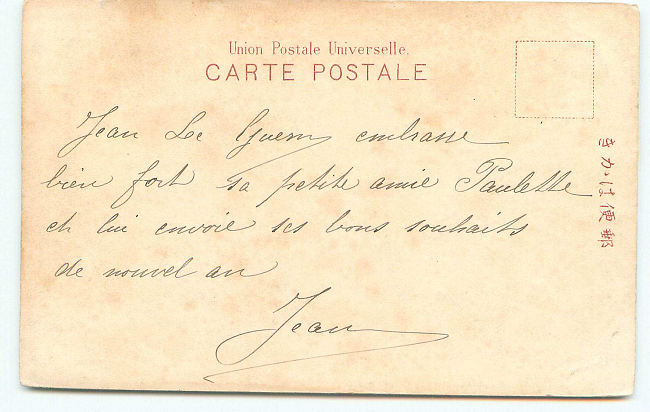 Union Postale Universelle.
CARTE POSTALE
Jean Le Guern embrasse
bien fort sa petite amie Paulette
et lui envoie ses bons souhaits
de nouvel an
Jean
郵便はがき